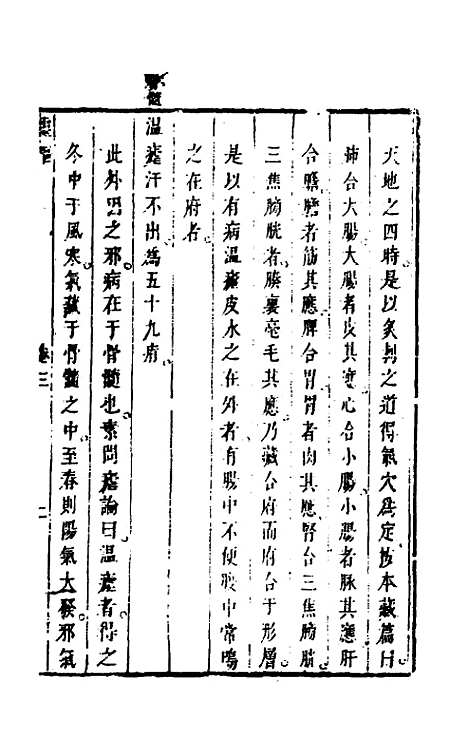 天地之四時是以灸刺之道得氣穴為定故本藏篇曰
肺合大腸大腸者皮其應心合小腸小腸者脉其應肝
合膽膽者筋其應脾合胃胃者肉其應腎合三焦膀胱
三焦膀胱者腠裏毫毛其應乃藏合府而府合于形層
是以有病温瘧皮水之在外者有腸中不便腹中常鳴
之在府者
骨髓
温瘧汗不出為五十九痏
此外因之邪病在于骨髓也素問瘧論曰温瘧者得之
冬中于風寒氣藏于骨髓之中至春則陽氣大發邪氣
卷三
二